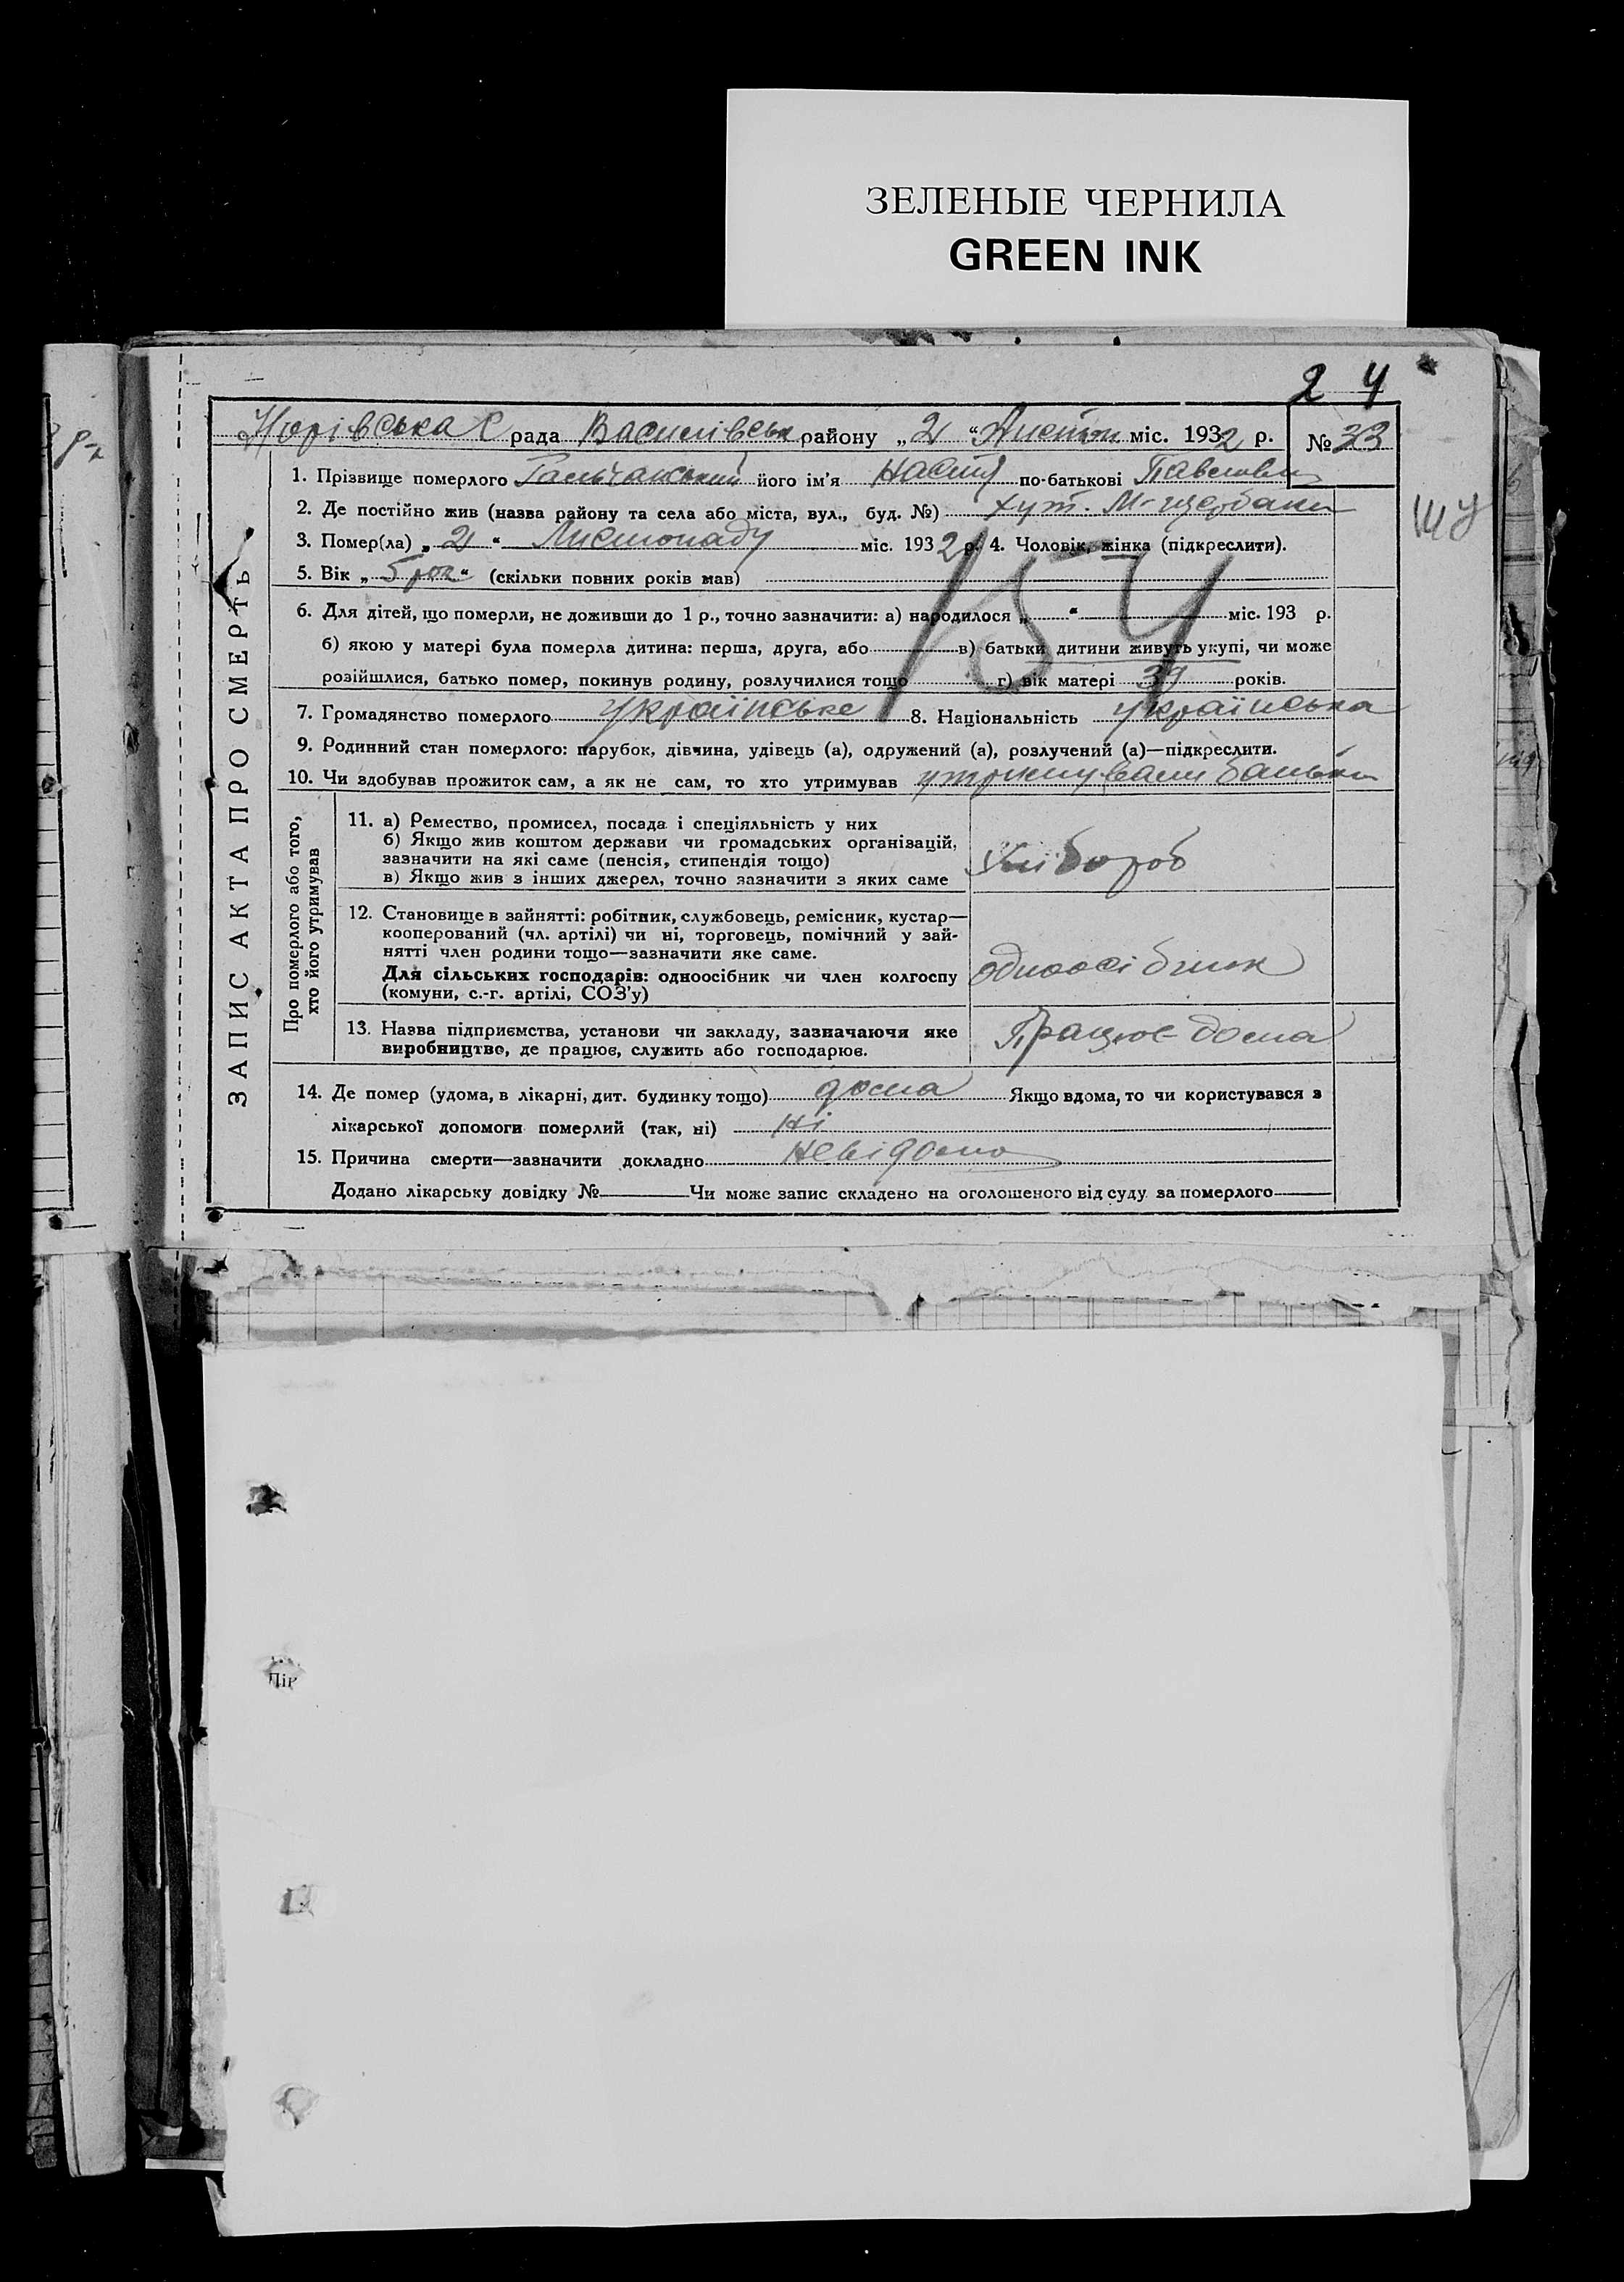 ЗЕЛЕНЫЕ ЧЕРНИЛА
GREEN INK
2 4
рада Василівськ району „2 “ Листоп міс. 1932 р. № 33
1. Прізвище померлого його ім'я Настя по-батькові Павловн
2. Де постійно жив (назва району та села або міста, вул., буд. №) хут. М-щербаки
3. Помер(ла) „2 “ Листопаду міс. 1932 р. 4. Чоловік, жінка (підкреслити).
5. Вік „ 5 рок “ (скільки повних років мав)
154
6. Для дітей, що померли, не доживши до 1 р., точно зазначити: а) народилося „ “ міс. 193 р.
б) якою у матері була померла дитина: перша, друга, або в) батьки дитини живуть укупі, чи може
розійшлися, батько помер, покинув родину, розлучилися тощо г) вік матері 39 років.
7. Громадянство померлого українське 8. Національність українська
9. Родинний стан померлого: парубок, дівчина, удівець (а), одружений (а), розлучений (а)—підкреслити.
10. Чи здобував прожиток сам, а як не сам, то хто утримував утримували батьки
ЗАПИС АКТА ПРО СМЕРТЬ
Про померлого або того,
хто його утримував
11. а) Ремество, промисел, посада і спеціяльність у них
б) Якщо жив коштом держави чи громадських організацій,
зазначити на які саме (пенсія, стипендія тощо)
в) Якщо жив з інших джерел, точно зазначити з яких саме
хлібороб
12. Становище в зайнятті: робітник, службовець, ремісник, кустар—
кооперований (чл. артілі) чи ні, торговець, помічний у зай-
нятті член родини тощо—зазначити яке саме.
Для сільських господарів: одноосібник чи член колгоспу
(комуни, с.-г. артілі, СОЗ'у)
одноосібник
13. Назва підприємства, установи чи закладу, зазначаючи яке
виробництво, де працює, служить або господарює.
Працює дома
14. Де помер (удома, в лікарні, дит. будинку тощо) дома Якщо вдома, то чи користувався з
лікарської допомоги померлий (так, ні) Ні
15. Причина смерти—зазначити докладно Невідомо
Додано лікарську довідку № Чи може запис складено на оголошеного від суду за померлого